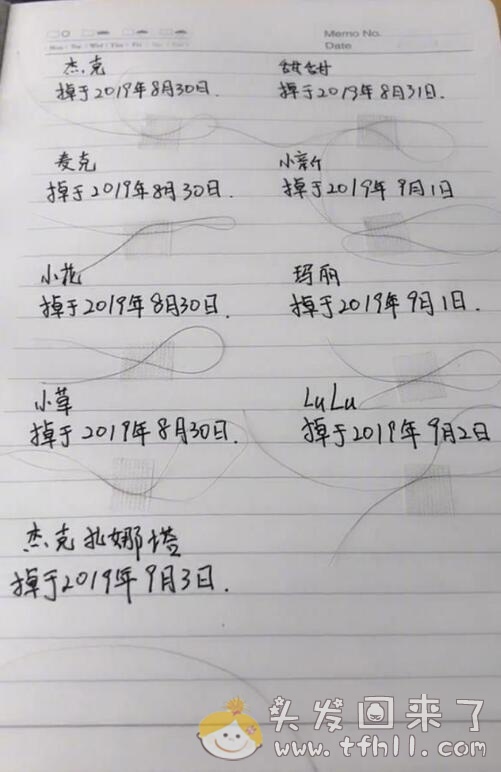 Memo No.
Mon Tue Wed Thu Fri Sat Sun
Date
杰克
掉于2019年8月30日.
甜甜
掉于2019年8月31日.
麦克
掉于2019年8月30日.
小新
掉于2019年9月1日
小花
掉于2019年8月30日.
玛丽
掉于2019年9月1日.
小草
掉于2019年8月30日.
LuLu
掉于2019年9月2日
杰克扎娜塔
掉于2019年9月3日.
头发回来了
www.tfhll.com